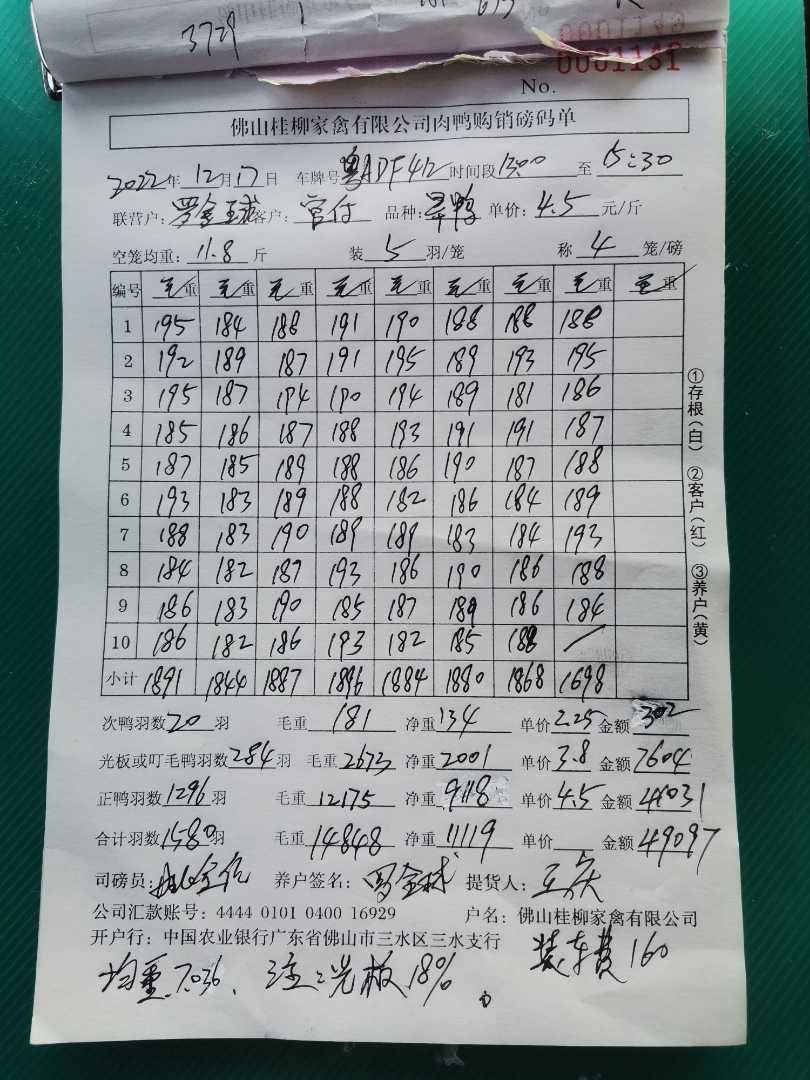 3729
0001151
No.
佛山桂柳家禽有限公司肉鸭购销磅码单
2022年12月17日 车牌号粤ADF412 时间段13:00至15:30
联营户:罗金球 客户:官付 品种:旱鸭 单价:4.5元/斤
空笼均重:11.8斤 装5羽/笼 称4笼/磅
编号 毛重 毛重 毛重 毛重 毛重 毛重 毛重 毛重 毛重
1 195 184 188 191 190 188 188 188
2 192 189 187 191 195 189 193 195
3 195 187 194 190 194 189 181 186
4 185 186 187 188 193 191 191 187
5 187 185 189 188 186 190 187 188
6 193 183 189 188 182 186 184 189
7 188 183 190 189 189 183 184 193
8 184 182 187 193 186 190 186 188
9 186 183 190 185 187 189 186 184
10 186 182 186 193 182 185 188 /
小计 1891 1844 1887 1896 1884 1880 1868 1698
次鸭羽数20羽 毛重181 净重134 单价2.25 金额302
光板或叮毛鸭羽数284羽 毛重2673 净重2001 单价3.8 金额7604
正鸭羽数1296羽 毛重12175 净重9118 单价4.5 金额41031
合计羽数1580羽 毛重14848 净重11119 单价 金额49097
司磅员: 养户签名:罗金球 提货人:王庆
公司汇款账号:4444 0101 0400 16929 户名:佛山桂柳家禽有限公司
开户行:中国农业银行广东省佛山市三水区三水支行
均重7.036、注:光板18% 装车费160
①存根(白) ②客户(红) ③养户(黄)